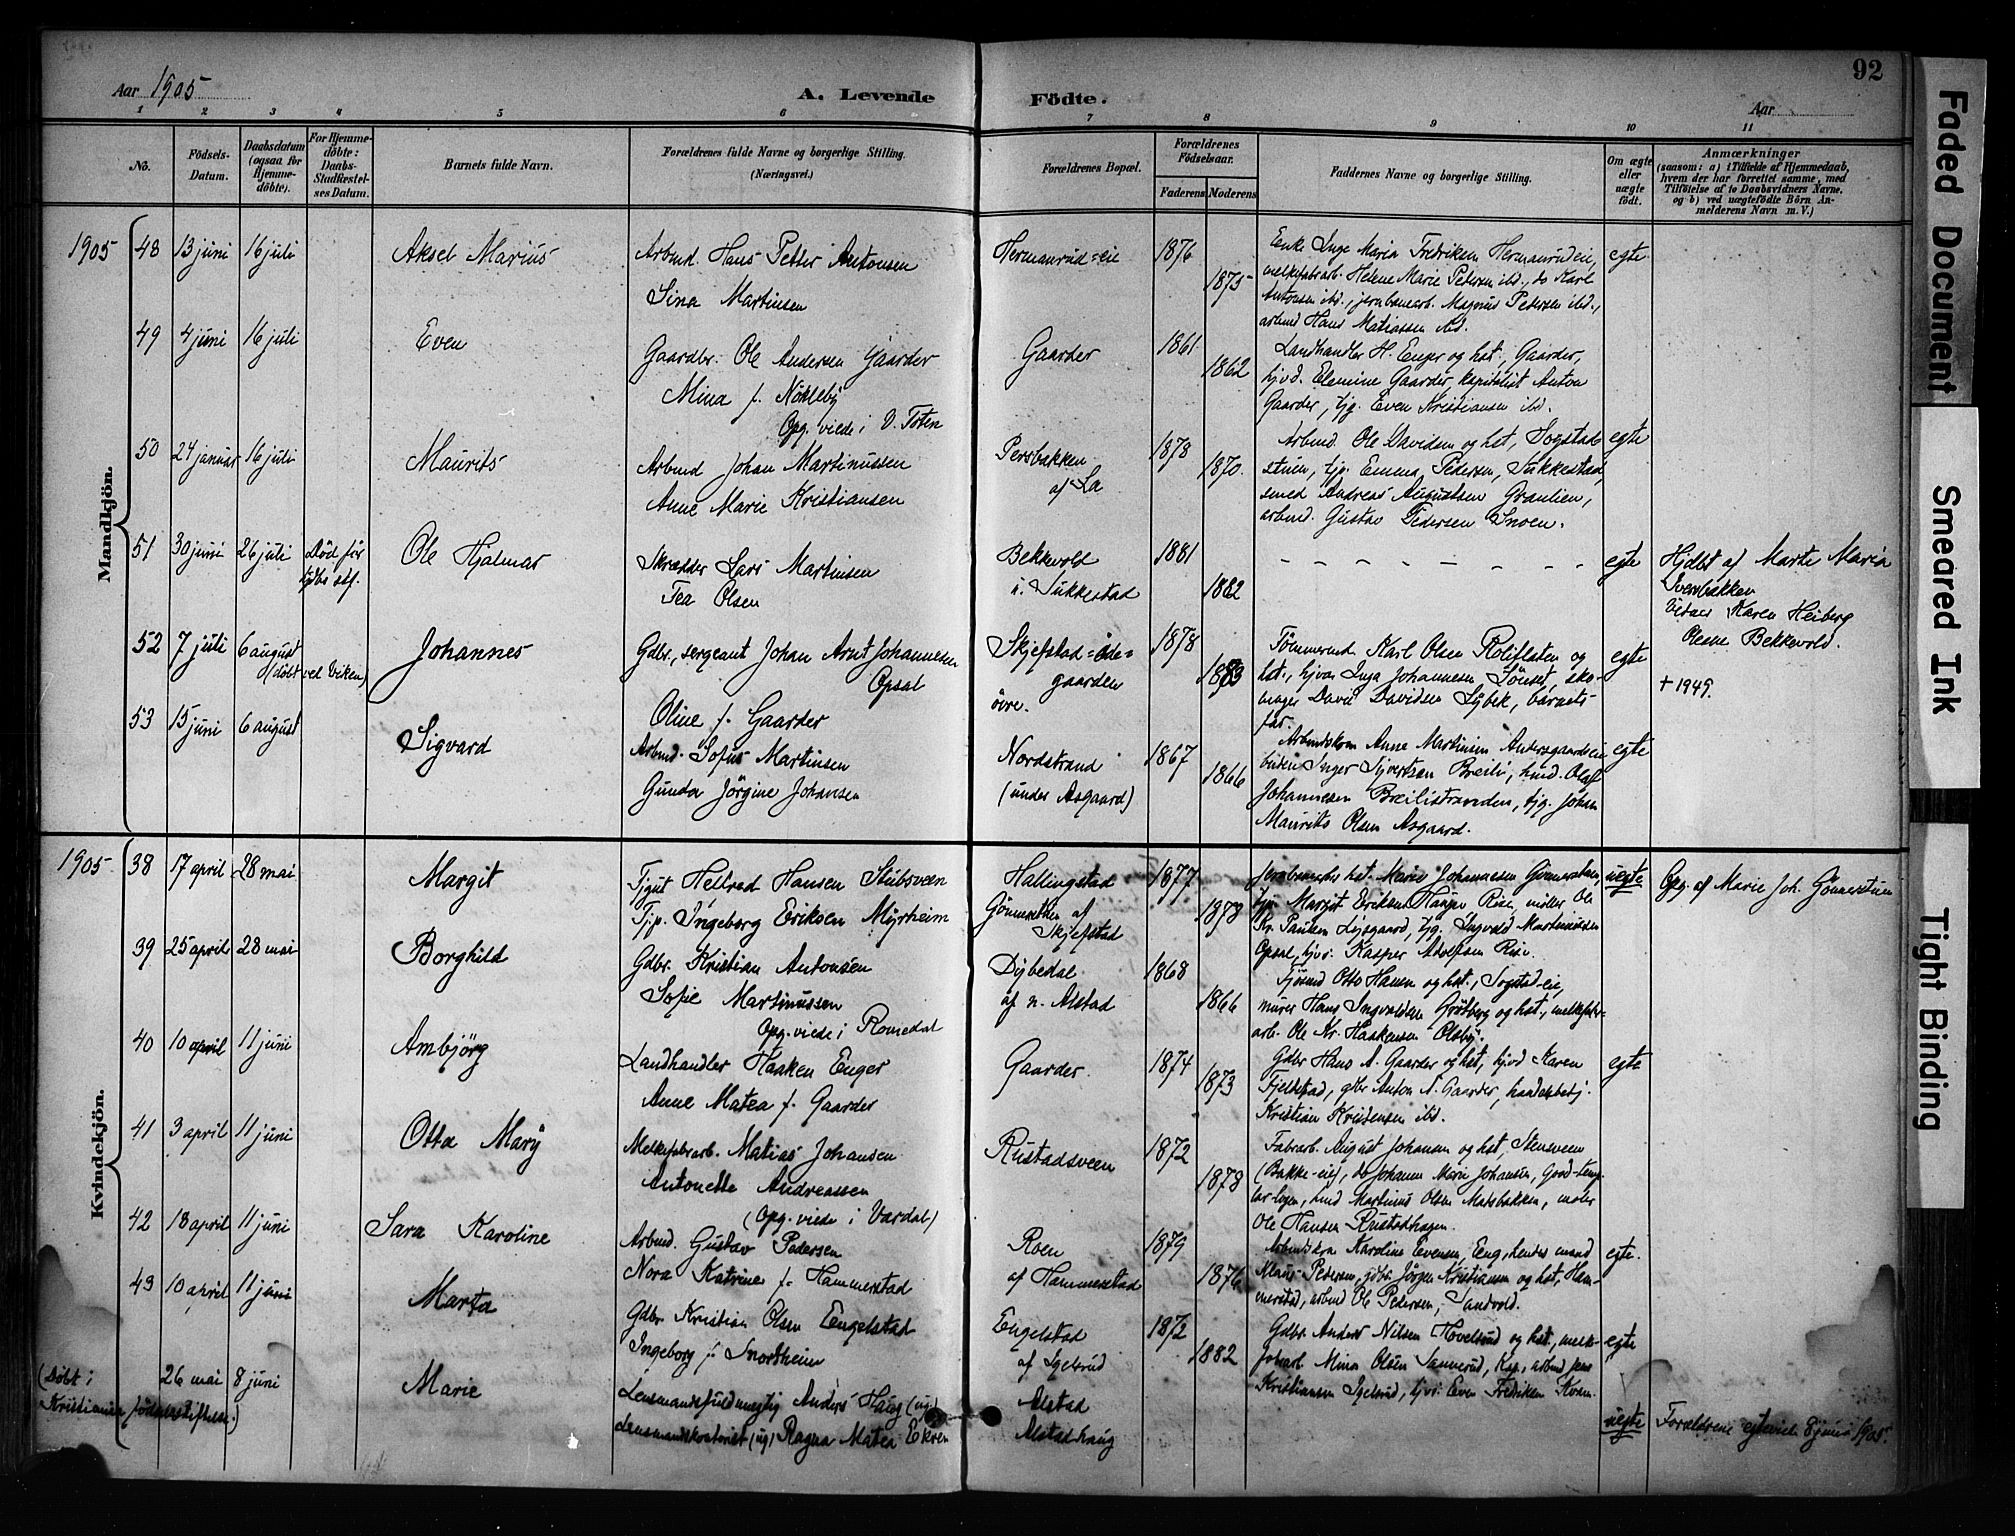 92
Aar 1905
A. Levende Födte.
Aar
1 2 3 4 5 6 7 8 9 10 11
No.
Födsels-Datum.
Daabsdatum (ogsaa for Hjemmedöbte).
For Hjemmedöbte: Daabs-Stadfæstelses Datum.
Barnets fulde Navn.
Forældrenes fulde Navne og borgerlige Stilling. (Næringsvei.)
Forældrenes Bopæl.
Forældrenes Födselsaar.
Faderens Moderens
Faddernes Navne og borgerlige Stilling.
Om ægte eller uægte födt.
Anmærkninger
(saasom: a) i Tilfælde af Hjemmedaab, hvem der har forrettet samme, med Tilföielse af to Daabsvidners Navne, og b) ved uægtefödte Börn Anmelderens Navn m. V.)
Mandkjön.
1905 48 13 juni 16 juli Aksel Marius
Arbmd. Hans Petter Antonsen
Sina Martinsen
Hermanrud-eie 1876 1875
Enke Inge Maria Fredriksen Hermanrudeie,
melkefabrarb. Helene Marie Pedersen ibd., do Karl
Antonsen ibd., jernbanearb. Magnus Pedersen ibd.,
arbmd Hans Matiassen ibd.
egte
49 4 juni 16 juli Even
Gaardbr. Ole Andersen Gaarder
Mina f. Nökleby
Opg. viede i V. Toten
Gaarder 1861 1862
Landhandler H. Enger og hst., Gaarder,
hjvd. Elemine Gaarder, kapitalist Anton
Gaarder, tjg. Even Kristiansen ibd.
50 24 januar 16 juli Maurits
Arbmd Johan Martinussen
Anne Marie Kristiansen
Persbakken
af La
1878 1870.
Arbmd. Ole Davidsen og hst, Sogstad
stuen, tjg. Emma Pedersen, Sukkestad,
smed Andreas Augustsen Granlien,
arbmd. Gustav Pedersen Snoen.
egte
51 30 juni 26 juli Död før
dåbs stf.
Ole Hjalmar
Skrædder Lars Martinsen
Tea Olsen
Bekkevold
u. Sukkestad
1881 1882
egte
Hjdbt af Marte Maria
Sversbakken
Vitner Karen Heiberg
Olene Bekkevold.
52 7 juli 6 august
(døbt ved Viken)
Johannes
Gdbr., sergeant Johan Arnt Johannesen
Opsal
Oline f. Gaarder
Skjefstad-öde-
gaarden
övre.
1878 1883
Tømmermd. Karl Olsen Roliflaten og
hst., hjva Inga Johannesen Sönset, sko-
mager David Davidsen Lybek, barnets
far.
egte
+ 1949.
53 15 juni 6 august Sigvard
Arbmd. Sofus Martinsen
Gunda Jörgine Johansen
Nordstrand
(under Asgaard)
1867 1866
Arbmdskone Anne Martinsen Andersgaardseie
Inger Syvertsen Breili, hmd. Olaf
Johannesen Breilistranden, tjg. Johan
Maurits Olsen Asgaard.
egte
Kvindekjön.
1905 38 17 april 28 mai Margit
Tjgut Helrad Hansen Stubsveen
Tjp. Ingeborg Eriksen Myrheim
Hallingstad
Gönnerstuen af
Skjefstad
1877 1878
hst. Marie Johannesen Gönnerstuen,
tjp. Margit Eriksen Rise, møller Ole
Kr. Paulsen Lysgaard, tjg. Ingvald Martinussen
Opsal, hjv: Kasper Adolfsen Rise
uegte
Opg. af Marie Joh. Gönnerstuen
39 25 april 28 mai Borghild
Gdbr. Kristian Antonsen
Sofie Martinussen
Opg. viede i Romedal
Dybedal
af n. Alstad
1868 1866
Tjömd Otto Hansen og hst., Sogstad-eie,
murer Hans Ingvaldsen Grötberg og hst., melkefabr-
arb. Ole Kr. Haakensen Olsby.
40 10 april 11 juni Ambjörg
Landhandler Haaken Enger
Anne Matea f. Gaarder
Gaarder 1874 1873
Gdbr Hans A. Gaarder og hst, hjvd Karen
Fjeldstad, gdbr Anton A. Gaarder, handelsbetj.
Kristian Kristensen ibd.
egte
41 3 april 11 juni Otta Mary
Melkefabrarb. Matias Johansen
Antonette Andreassen
(Opg. viede i Vardal)
Rustadsveen 1872 1878
Fabrarb. August Johansen og hst, Stensveen
(Bakke-eie), do Johanne Marie Johansen, Good-temp-
lar logen, hmd Martinius Olsen Matsbakken, maler
Ole Hansen Rustadhagen.
42 18 april 11 juni Sara Karoline
Arbmd. Gustav Pedersen
Nora Katrine f. Hammerstad
Roen
af Hammerstad
1879 1876
Arbmdskra Karoline Evensen, Eng, hendes mand
Klaus Pedersen, gdbr. Jörgen Kristiansen og hst, Ham-
merstad, arbmd Ole Pedersen, Sandvold.
egte.
43 10 april 11 juni Marta
Gdbr Kristian Olsen Engelstad
Ingeborg f. Snortheim
Engelstad
af Igelsrud
1872 1882
Gdbr. Anders Nilsen Hovelsrud og hst, melke-
fabrarb Mina Olsen Sannerud, Kap, arbmd Jens
Kristiansen Igelsrud, tjvs: Even Fredriksen Kvam.
egte
(Döbt i
Kristiania födselsstiftelse.)
26 mai 8 juni Marie
Lensmandsfuldmegtig Anders Haug (ug.)
Lensmandskontorist (ug) Ragna Matea Ekren
Alstad
Alstadhaug
uegte
Forældrene egteviet 8 juni 1905.
Faded Document
Smeared Ink
Tight Binding